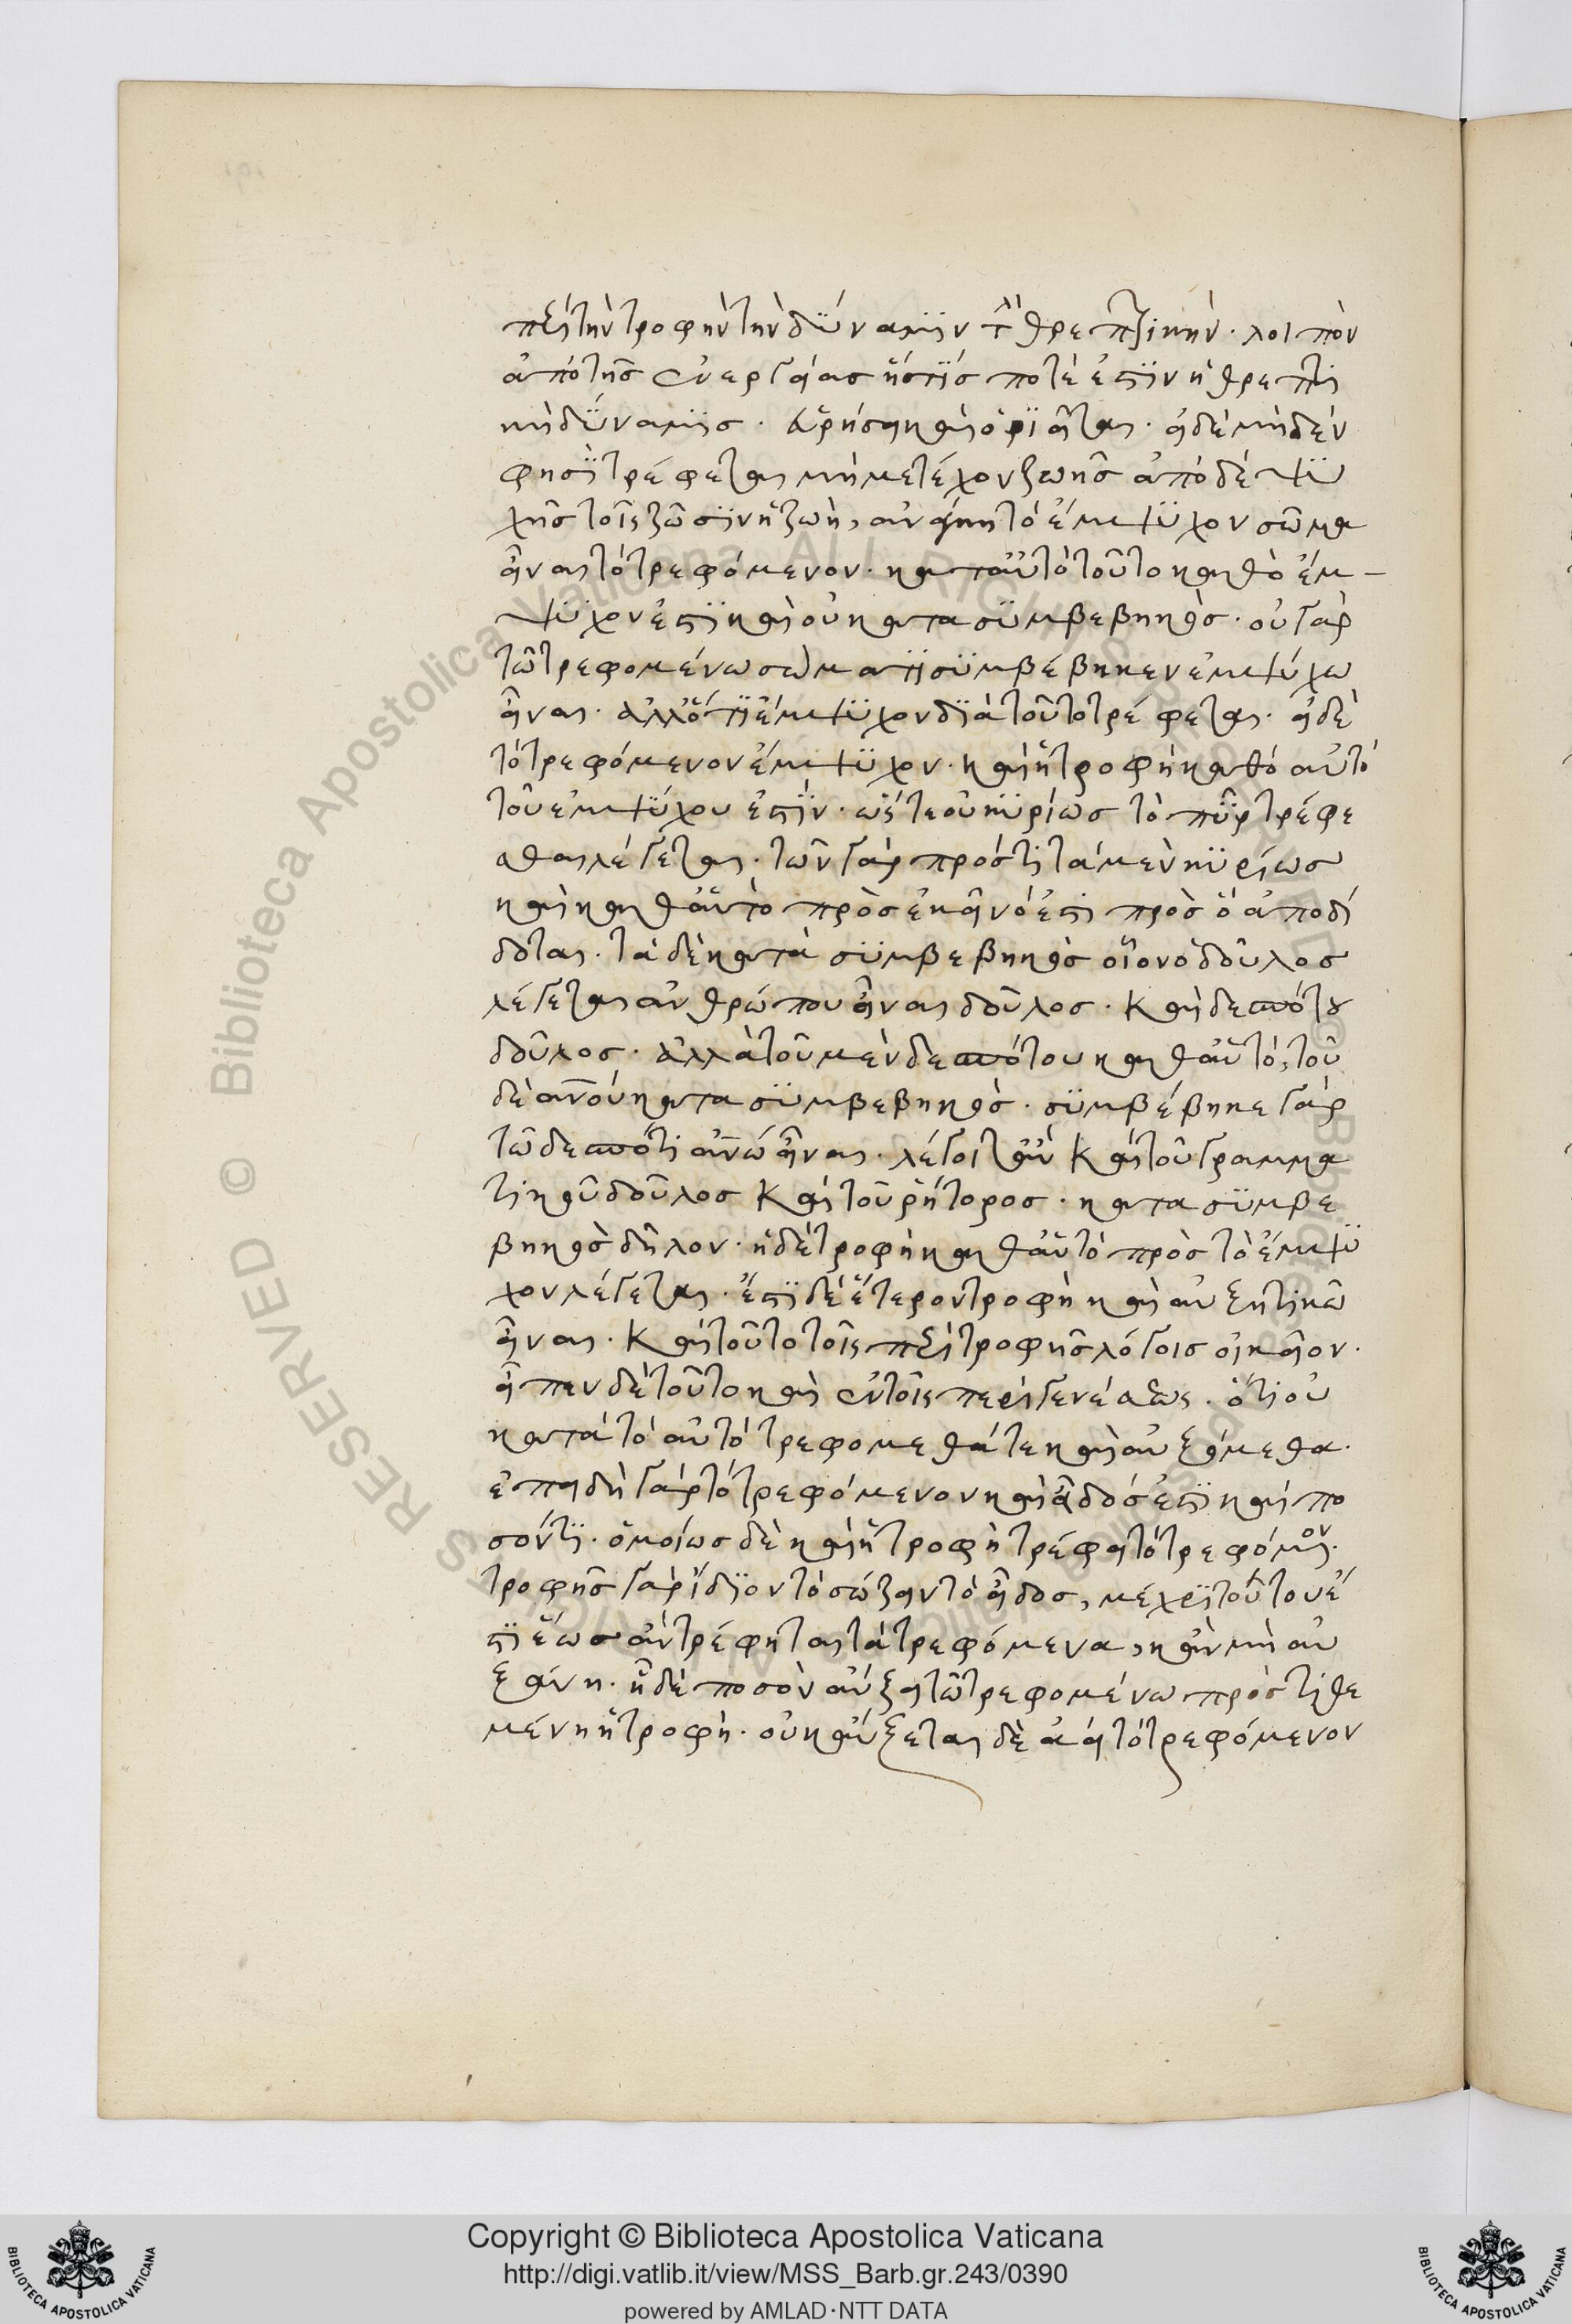 περὶ τὴν τροφὴν τὴν δύναμιν τὴν θρεπτικήν. λοιπὸν
ἀπὸ τῆς ἐνεργείας ἥστις ποτέ ἐστιν ἡ θρεπτι
κὴ δύναμις. εὑρήσει καὶ ὁριεῖται. εἰ δὲ μηδέν
φησι τρέφεται μὴ μετέχον ζωῆς ἀπὸ δὲ ψυ
χῆς τοῖς ζῶσιν ἡ ζωὴ, ἀνάγκη τὸ ἔμψυχον σῶμα
εἶναι τὸ τρεφόμενον. κατ' αὐτὸ τοῦτο καθὸ ἔμ-
ψυχον ἐστι καὶ οὐ κατα συμβεβηκὸς. οὐ γὰρ
τῶ τρεφομένω σώματι συμβέβηκεν ἐμψύχω
εἶναι. ἀλλ' ὅτι ἔμψυχον διὰ τοῦτο τρέφεται. εἰ δὲ
τὸ τρεφόμενον ἔμψυχον. καὶ ἡ τροφὴ καθὸ αὐτὸ
τοῦ ἐμψύχου ἐστίν. ὥστε οὐ κυρίως τὸ πῦρ τρέφε
σθαι λέγεται. τῶν γὰρ πρός τι τὰ μὲν κυρίως
καὶ καθ' αὑτὸ πρὸς ἐκεῖνό ἐστι πρὸς ὃ ἀποδί
δοται. τὰ δὲ κατὰ συμβεβηκὸς οἷον ὁ δοῦλος
λέγεται ἀνθρώπου εἶναι δοῦλος. καὶ δεσπότου
δοῦλος. ἀλλὰ τοῦ μὲν δεσπότου καθ' αὑτό, τοῦ
δὲ ανου κατα συμβεβηκὸς. συμβέβηκε γὰρ
τῶ δεσπότι ανω εἶναι. λέγοιτ' ἂν καὶ τοῦ γραμμα
τικοῦ δοῦλος καὶ τοῦ ῥήτορος. κατα συμβε
βηκὸς δῆλον. ἡ δὲ τροφὴ καθ' αὑτὸ πρὸς τὸ ἔμψυ
χον λέγεται. ἔστι δὲ ἕτερον τροφὴ καὶ αὐξητικῶ
εἶναι. καὶ τοῦτο τοῖς περὶ τροφῆς λόγοις οἰκεῖον.
εἶπεν δὲ τοῦτο καὶ ἐν τοῖς περὶ γενέσεως. ὅτι οὐ
κατὰ τὸ αὐτὸ τρεφομεθά τε καὶ αὐξόμεθα.
ἐπειδὴ γὰρ τὸ τρεφόμενον καὶ εἶδός ἐστι καὶ πο
σόν τι. ὁμοίως δὲ καὶ ἡ τροφὴ τρέφει τὸ τρεφόμενον.
τροφῆς γὰρ ἴδιον τὸ σώζειν τὸ εἶδος, μέχρι τούτου ἐ
στι ἕως ἂν τρέφηται τὰ τρεφόμενα, κἂν μὴ αὐ
ξάνη. ᾗ δὲ ποσὸν αὔξει τῶ τρεφομένω προστιθε
μένη ἡ τροφὴ. οὐκ αὔξεται δὲ ἀεὶ τὸ τρεφόμενον
Copyright © Biblioteca Apostolica Vaticana
http://digi.vatlib.it/view/MSS_Barb.gr.243/0390
powered by AMLAD·NTT DATA